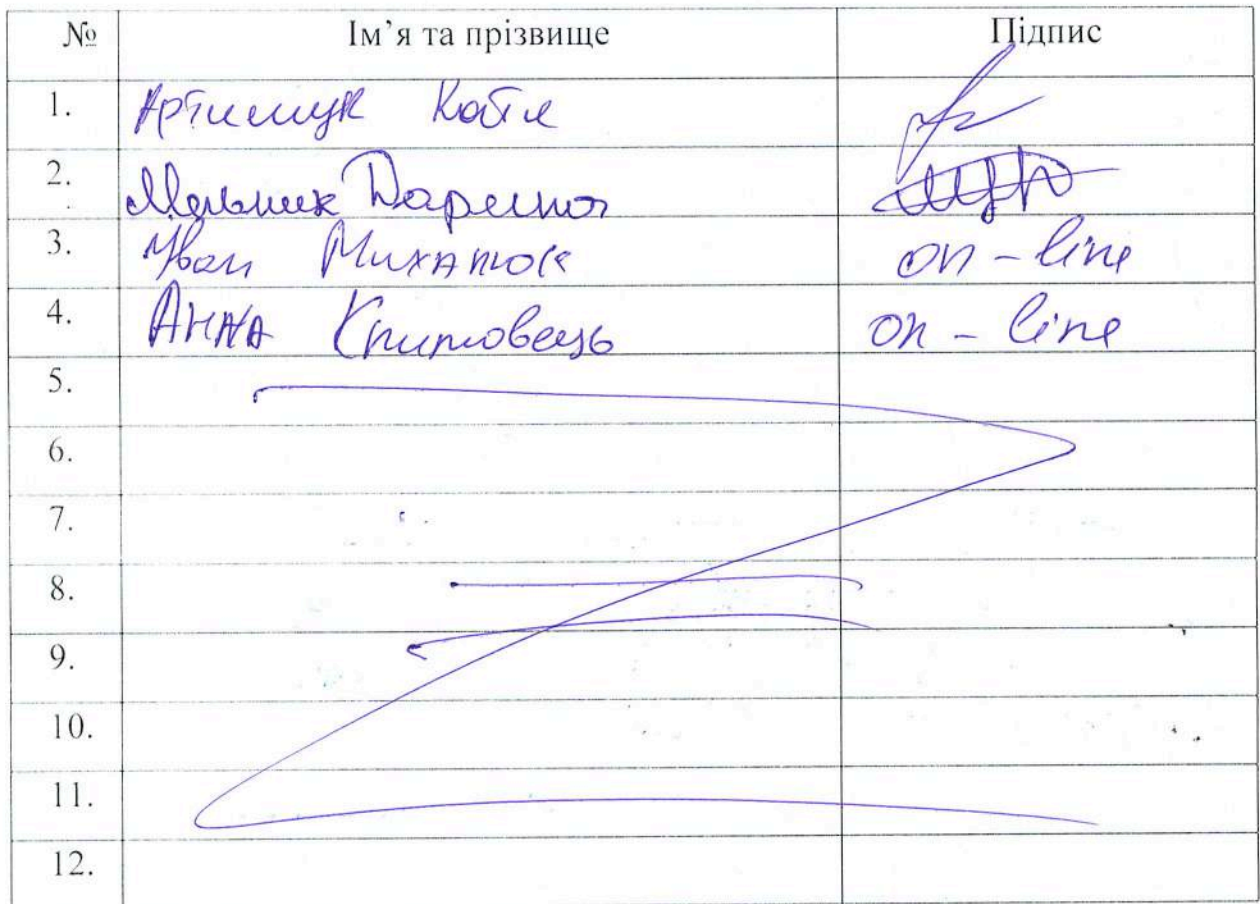 № Ім’я та прізвище Підпис
1. Артимук Катя
2. Мельник Дарина
3. Іван Михалюк on-line
4. Анна on-line
5.
6.
7.
8.
9.
10.
11.
12.